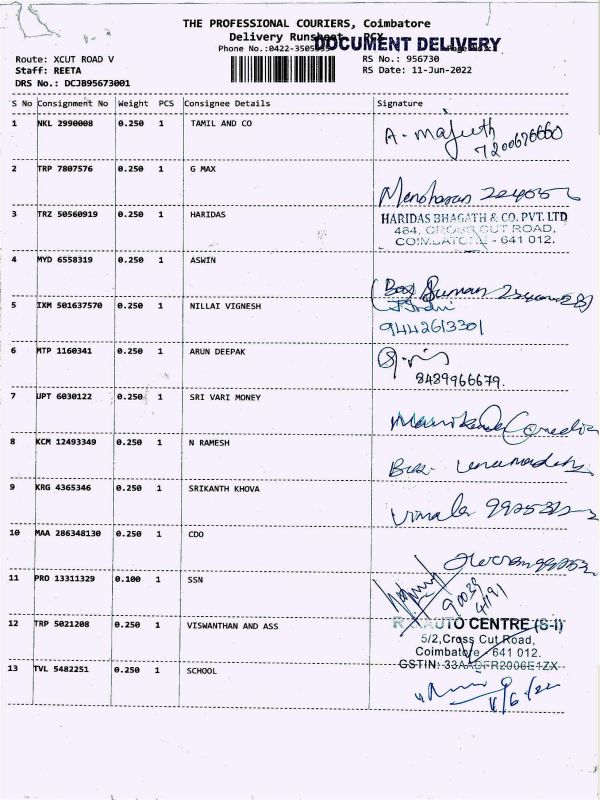 THE PROFESSIONAL COURIERS, Coimbatore
Delivery Runsheet PCX
DOCUMENT DELIVERY
Phone No.:0422-3505
Route: XCUT ROAD V RS No.: 956730
Staff: REETA RS Date: 11-Jun-2022
DRS No.: DCJB95673001
S No Consignment No Weight PCS Consignee Details Signature
1 NKL 2990008 0.250 1 TAMIL AND CO
A. Majeeth
7200676660
2 TRP 7807576 0.250 1 G MAX
Manoharan
3 TRZ 50560919 0.250 1 HARIDAS
HARIDAS BHAGATH & CO. PVT. LTD
464, CROSS CUT ROAD,
COIMBATORE - 641 012.
4 MYD 6558319 0.250 1 ASWIN
Suman
5 IXM 501637570 0.250 1 NILLAI VIGNESH
9442613301
6 MTP 1160341 0.250 1 ARUN DEEPAK
8489966679.
7 UPT 6030122 0.250 1 SRI VARI MONEY
8 KCM 12493349 0.250 1 N RAMESH
9 KRG 4365346 0.250 1 SRIKANTH KHOVA
Vimala
10 MAA 286348130 0.250 1 CDO
11 PRO 13311329 0.100 1 SSN
90039
12 TRP 5021208 0.250 1 VISWANTHAN AND ASS
AUTO CENTRE (S-I)
5/2,Cross Cut Road,
Coimbatore - 641 012.
GSTIN: 33AADFR2006E1ZX
13 TVL 5482251 0.250 1 SCHOOL
11/6/22